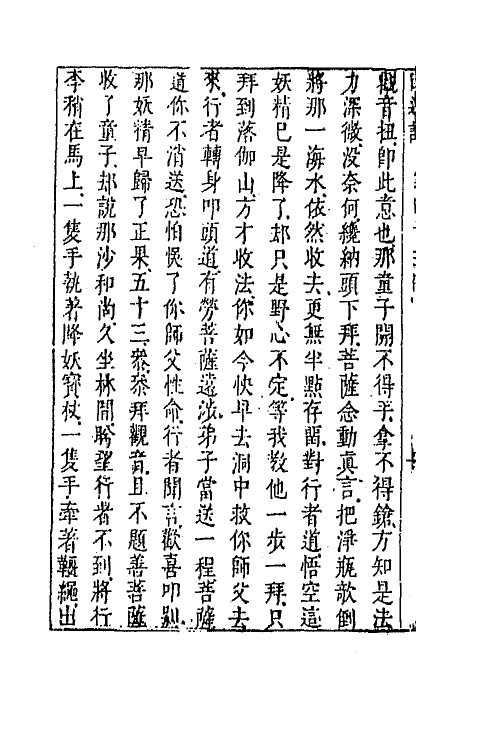 觀音扭即此意也那童子開不得手拿不得鎗方知是法
力深微没奈何纔納頭下拜菩薩念動真言把淨瓶欹倒
將那一海水依然收去更無半點存留對行者道悟空這
妖精已是降了却只是野心不定等我教他一步一拜只
拜到落伽山方才收法你如今快早去洞中救你師父去
來行者轉身叩頭道有勞菩薩遠涉弟子當送一程菩薩
道你不消送恐怕悞了你師父性命行者聞言歡喜叩别
那妖精早歸了正果五十三叅叅拜觀音且不題善菩薩
收了童子却說那沙和尚久坐林間盼望行者不到將行
李稍在馬上一隻手執著降妖寶杖一隻手牽著韁繩出